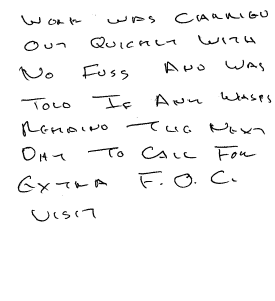 WORK WAS CARRIED
OUT QUICKLY WITH
NO FUSS AND WAS
TOLD IF ANY WASPS
REMAIND THE NEXT
DAY TO CALL FOR
EXTRA F.O.C.
VISIT